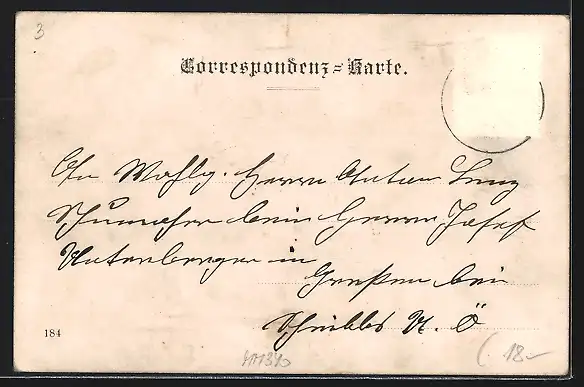 3
Correspondenz=Karte.
An Wohlg. Herrn Anton Lenz
Schumacher beim Herrn Josef
Unterberger in
Greßten bei
Scheibbs N. Ö
184
18-